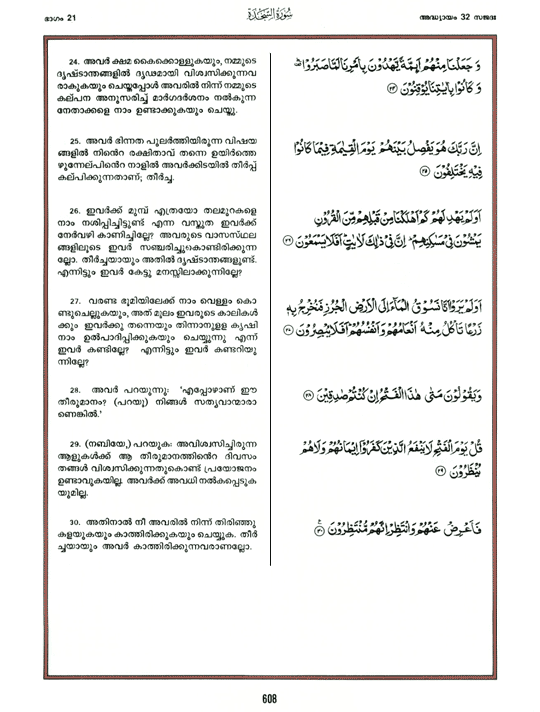 ഭാഗം 21
سُورَةُ السَّجْدَة
അദ്ധ്യായം 32 സജദഃ
24. അവര്‍ ക്ഷമ കൈക്കൊള്ളുകയും, നമ്മുടെ
ദൃഷ്ടാന്തങ്ങളില്‍ ദൃഢമായി വിശ്വസിക്കുന്നവ
രാകുകയും ചെയ്തപ്പോള്‍ അവരില്‍ നിന്ന് നമ്മുടെ
കല്‍പന അനുസരിച്ച് മാര്‍ഗദര്‍ശനം നല്‍കുന്ന
നേതാക്കളെ നാം ഉണ്ടാക്കുകയും ചെയ്തു.
وَجَعَلْنَا مِنْهُمْ أَئِمَّةً يَهْدُونَ بِأَمْرِنَا لَمَّا صَبَرُوا
وَكَانُوا بِآيَاتِنَا يُوقِنُونَ ٢٤
25. അവര്‍ ഭിന്നത പുലര്‍ത്തിയിരുന്ന വിഷയ
ങ്ങളില്‍ നിന്‍റെ രക്ഷിതാവ് തന്നെ ഉയിര്‍ത്തെ
ഴുന്നേല്‌പിന്‍റെ നാളില്‍ അവര്‍ക്കിടയില്‍ തീര്‍പ്പ്
കല്‌പിക്കുന്നതാണ്; തീര്‍ച്ച.
إِنَّ رَبَّكَ هُوَ يَفْصِلُ بَيْنَهُمْ يَوْمَ الْقِيٰمَةِ فِيمَا كَانُوا
فِيهِ يَخْتَلِفُونَ ٢٥
26. ഇവര്‍ക്ക് മുമ്പ് എത്രയോ തലമുറകളെ
നാം നശിപ്പിച്ചിട്ടുണ്ട് എന്ന വസ്തുത ഇവര്‍ക്ക്
നേര്‍വഴി കാണിച്ചില്ലേ? അവരുടെ വാസസ്ഥല
ങ്ങളിലൂടെ ഇവര്‍ സഞ്ചരിച്ചുകൊണ്ടിരിക്കുന്ന
ല്ലോ. തീര്‍ച്ചയായും അതില്‍ ദൃഷ്ടാന്തങ്ങളുണ്ട്.
എന്നിട്ടും ഇവര്‍ കേട്ടു മനസ്സിലാക്കുന്നില്ലേ?
أَوَلَمْ يَهْدِ لَهُمْ كَمْ أَهْلَكْنَا مِن قَبْلِهِم مِّنَ الْقُرُونِ
يَمْشُونَ فِي مَسٰكِنِهِمْ إِنَّ فِي ذٰلِكَ لَاٰيٰتٍ أَفَلَا يَسْمَعُونَ ٢٦
27. വരണ്ട ഭൂമിയിലേക്ക് നാം വെള്ളം കൊ
ണ്ടുചെല്ലുകയും, അത് മൂലം ഇവരുടെ കാലികള്‍
ക്കും ഇവര്‍ക്കു തന്നെയും തിന്നാനുള്ള കൃഷി
നാം ഉല്‍പാദിപ്പിക്കുകയും ചെയ്യുന്നു എന്ന്
ഇവര്‍ കണ്ടില്ലേ? എന്നിട്ടും ഇവര്‍ കണ്ടറിയു
ന്നില്ലേ?
أَوَلَمْ يَرَوْا أَنَّا نَسُوقُ الْمَآءَ إِلَى الْأَرْضِ الْجُرُزِ فَنُخْرِجُ بِهِ
زَرْعًا تَأْكُلُ مِنْهُ أَنْعَامُهُمْ وَأَنفُسُهُمْ أَفَلَا يُبْصِرُونَ ٢٧
28. അവര്‍ പറയുന്നു: 'എപ്പോഴാണ് ഈ
തീരുമാനം? (പറയൂ) നിങ്ങള്‍ സത്യവാന്മാരാ
ണെങ്കില്‍.'
وَيَقُولُونَ مَتٰى هٰذَا الْفَتْحُ إِن كُنتُمْ صٰدِقِينَ ٢٨
29. (നബിയേ,) പറയുക: അവിശ്വസിച്ചിരുന്ന
ആളുകള്‍ക്ക് ആ തീരുമാനത്തിന്‍റെ ദിവസം
തങ്ങള്‍ വിശ്വസിക്കുന്നതുകൊണ്ട് പ്രയോജനം
ഉണ്ടാവുകയില്ല. അവര്‍ക്ക് അവധി നല്‍കപ്പെടുക
യുമില്ല.
قُلْ يَوْمَ الْفَتْحِ لَا يَنفَعُ الَّذِينَ كَفَرُوا إِيمَانُهُمْ وَلَا هُمْ
يُنظَرُونَ ٢٩
30. അതിനാല്‍ നീ അവരില്‍ നിന്ന് തിരിഞ്ഞു
കളയുകയും കാത്തിരിക്കുകയും ചെയ്യുക. തീര്‍
ച്ചയായും അവര്‍ കാത്തിരിക്കുന്നവരാണല്ലോ.
فَأَعْرِضْ عَنْهُمْ وَانتَظِرْ إِنَّهُم مُّنتَظِرُونَ ٣٠
608